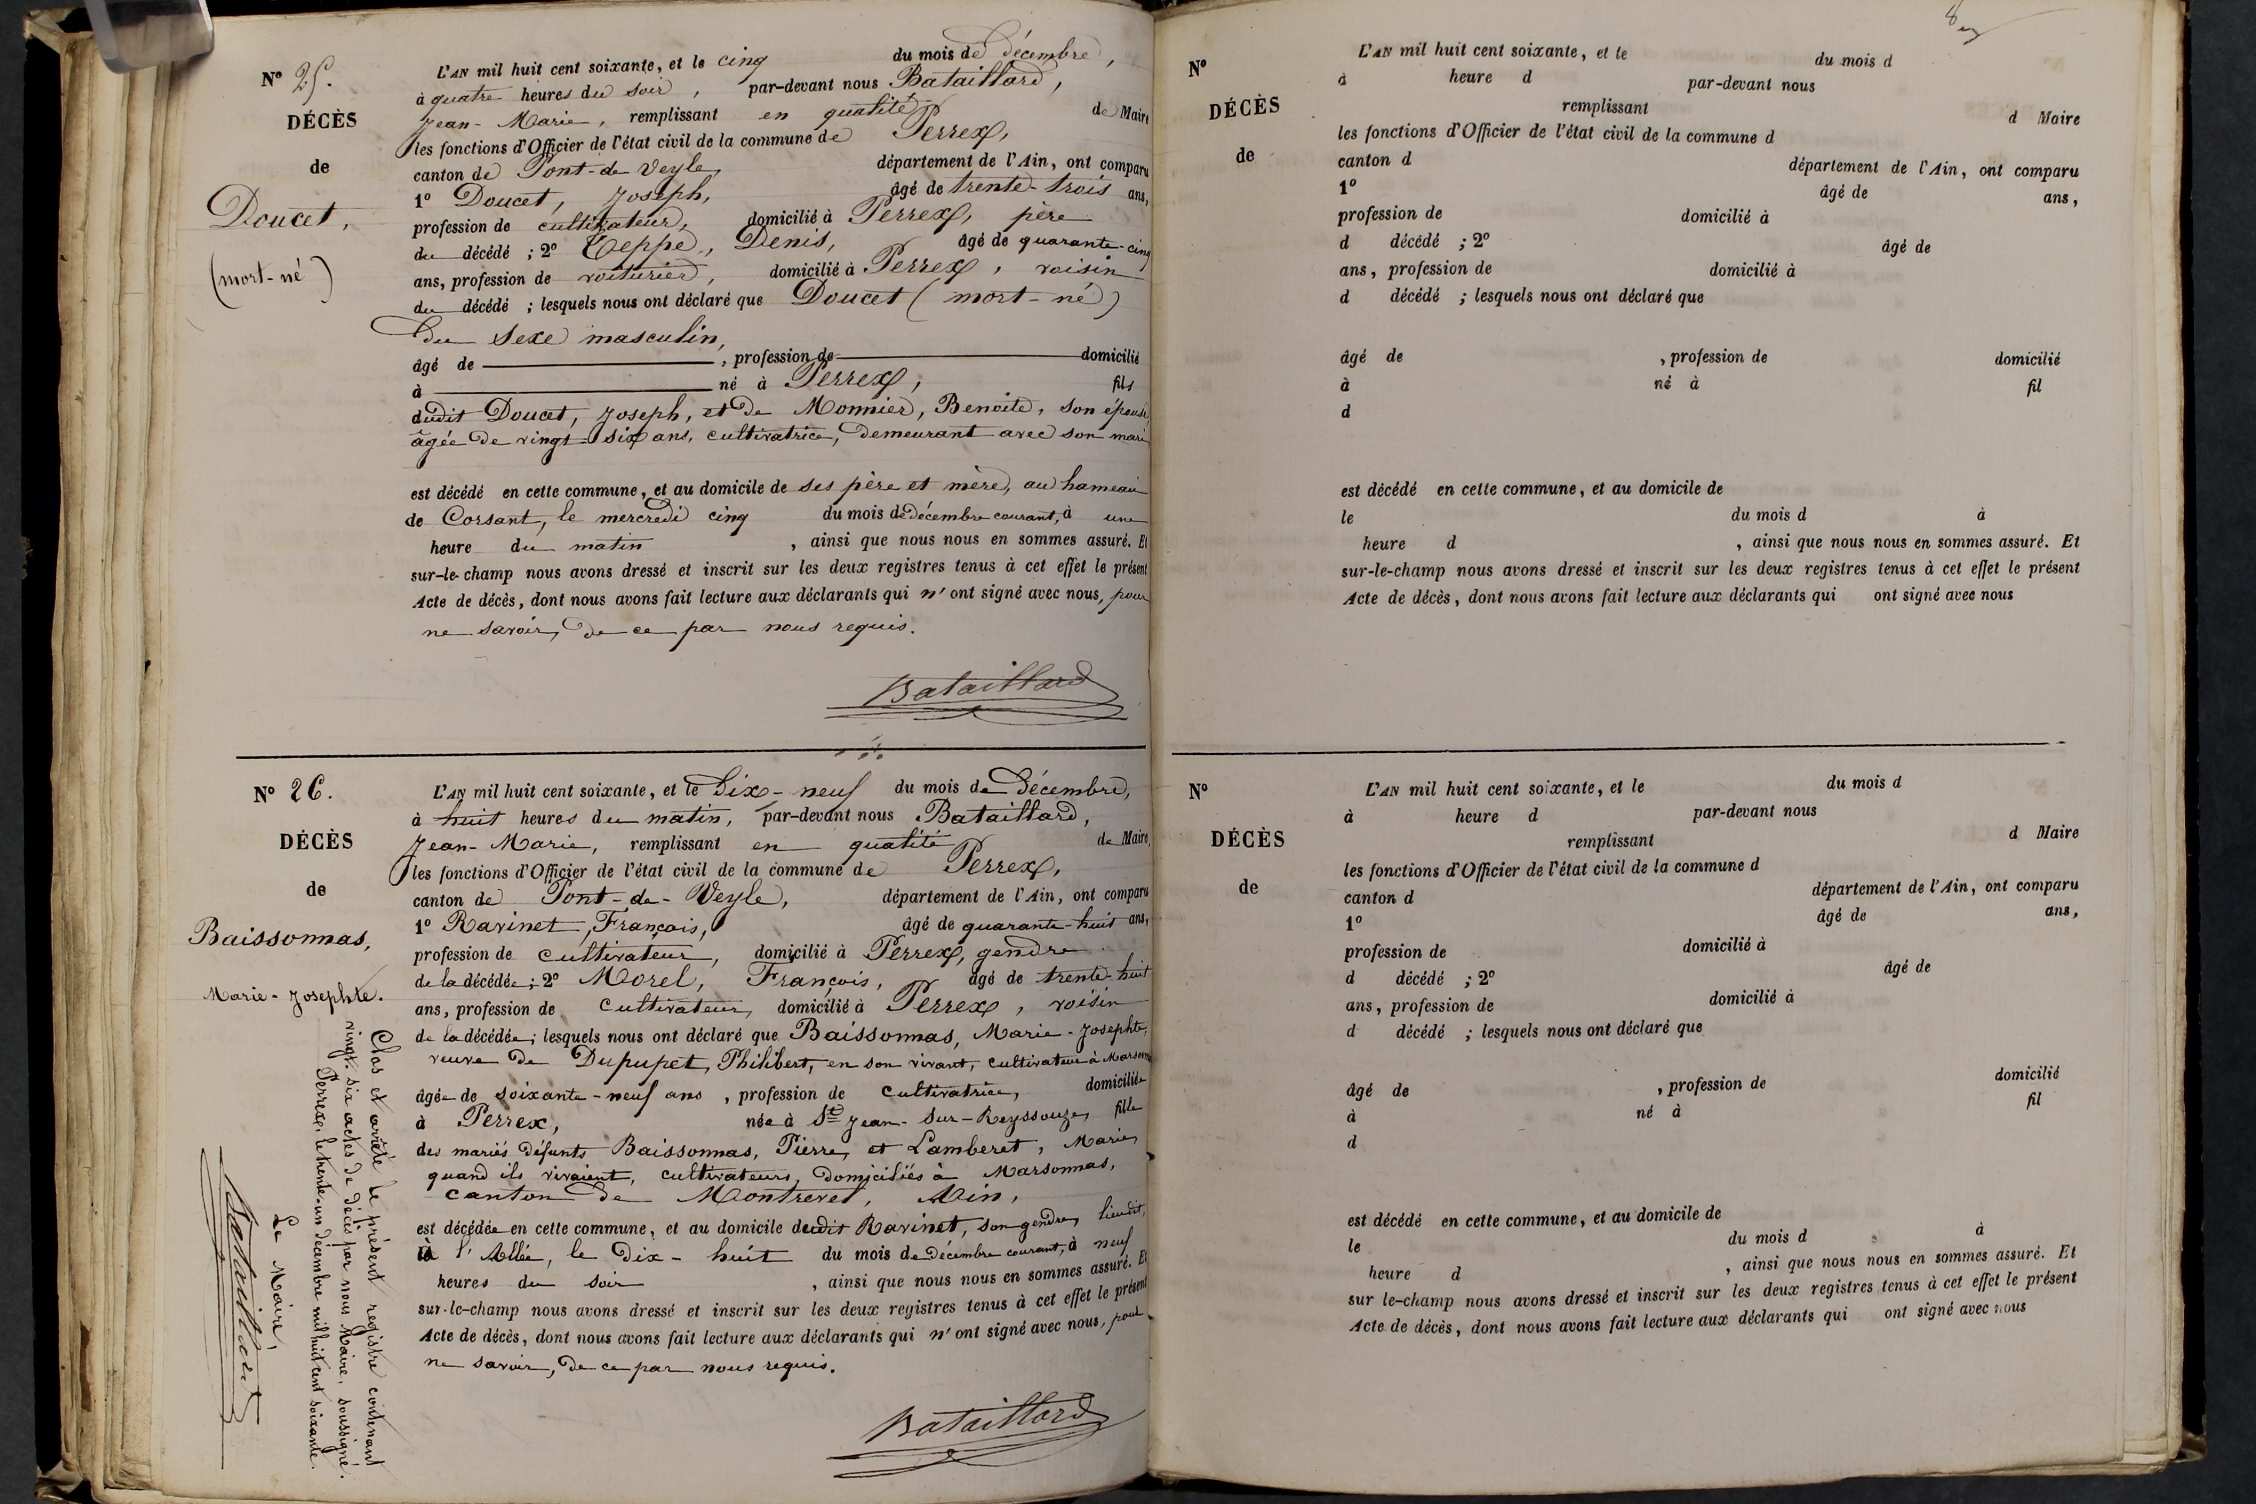 N° 25.
DÉCÈS
de
Doucet,
(mort-né)
L'AN mil huit cent soixante, et le cinq du mois de décembre,
à quatre heures du soir, par-devant nous Bataillard,
Jean-Marie, remplissant en qualité de Maire
les fonctions d'Officier de l'état civil de la commune de Perrex,
canton de Pont-de-Veyle, département de l'Ain, ont comparu
1° Doucet, Joseph, âgé de trente-trois ans,
profession de cultivateur, domicilié à Perrex, père
du décédé ; 2° Teppe, Denis, âgé de quarante-cinq
ans, profession de voiturier, domicilié à Perrex, voisin
du décédé ; lesquels nous ont déclaré que Doucet (mort-né)
du sexe masculin,
âgé de , profession de domicilié
à né à Perrex, fils
dudit Doucet, Joseph, et de Monnier, Benoite, son épouse
âgée de vingt-six ans, cultivatrice, demeurant avec son mari
est décédé en cette commune, et au domicile de ses père et mère, au hameau
de Corsant, le mercredi cinq du mois de décembre courant, à une
heure du matin , ainsi que nous nous en sommes assuré. Et
sur-le-champ nous avons dressé et inscrit sur les deux registres tenus à cet effet le présent
Acte de décès, dont nous avons fait lecture aux déclarants qui n'ont signé avec nous, pour
ne savoir, de ce par nous requis.
Bataillard
N° 26.
DÉCÈS
de
Baissonnas,
Marie-Josephte.
L'AN mil huit cent soixante, et le dix-neuf du mois de Décembre,
à huit heures du matin, par-devant nous Bataillard,
Jean-Marie, remplissant en qualité de Maire,
les fonctions d'Officier de l'état civil de la commune de Perrex,
canton de Pont-de-Veyle, département de l'Ain, ont comparu
1° Ravinet, François, âgé de quarante-huit ans,
profession de cultivateur, domicilié à Perrex, gendre
de la décédée ; 2° Morel, François, âgé de trente-huit
ans, profession de cultivateur, domicilié à Perrex, voisin
de la décédée ; lesquels nous ont déclaré que Baissonnas, Marie-Josephte,
veuve de Dupupet, Philibert, en son vivant, cultivateur à Marsonnas
âgée de soixante-neuf ans, profession de cultivatrice, domiciliée
à Perrex, née à St Jean-Sur-Reyssouze, fille
des mariés défunts Baissonnas, Pierre, et Lamberet, Marie,
quand ils vivaient, cultivateurs, domiciliés à Marsonnas,
canton de Montrevel, Ain,
est décédée en cette commune, et au domicile dudit Ravinet, son gendre, lieudit,
à l'Allée, le dix-huit du mois de décembre courant, à neuf
heures du soir , ainsi que nous nous en sommes assuré. Et
sur-le-champ nous avons dressé et inscrit sur les deux registres tenus à cet effet le présent
Acte de décès, dont nous avons fait lecture aux déclarants qui n'ont signé avec nous, pour
ne savoir, de ce par nous requis.
Bataillard
Clos et arrêté le présent registre contenant
vingt-six actes de décès par nous Maire, soussigné.
Perrex, le trente-un décembre mil huit cent soixante.
Le Maire,
Bataillard
8
N°
DÉCÈS
de
L'AN mil huit cent soixante, et le du mois d
à heure d par-devant nous
remplissant d Maire
les fonctions d'Officier de l'état civil de la commune d
canton d département de l'Ain, ont comparu
1° âgé de ans,
profession de domicilié à
d décédé ; 2° âgé de
ans, profession de domicilié à
d décédé ; lesquels nous ont déclaré que
âgé de , profession de domicilié
à né à fil
d
est décédé en cette commune, et au domicile de
le du mois d à
heure d , ainsi que nous nous en sommes assuré. Et
sur-le-champ nous avons dressé et inscrit sur les deux registres tenus à cet effet le présent
Acte de décès, dont nous avons fait lecture aux déclarants qui ont signé avec nous
N°
DÉCÈS
de
L'AN mil huit cent soixante, et le du mois d
à heure d par-devant nous
remplissant d Maire
les fonctions d'Officier de l'état civil de la commune d
canton d département de l'Ain, ont comparu
1° âgé de ans,
profession de domicilié à
d décédé ; 2° âgé de
ans, profession de domicilié à
d décédé ; lesquels nous ont déclaré que
âgé de , profession de domicilié
à né à fil
d
est décédé en cette commune, et au domicile de
le du mois d à
heure d , ainsi que nous nous en sommes assuré. Et
sur le-champ nous avons dressé et inscrit sur les deux registres tenus à cet effet le présent
Acte de décès, dont nous avons fait lecture aux déclarants qui ont signé avec nous